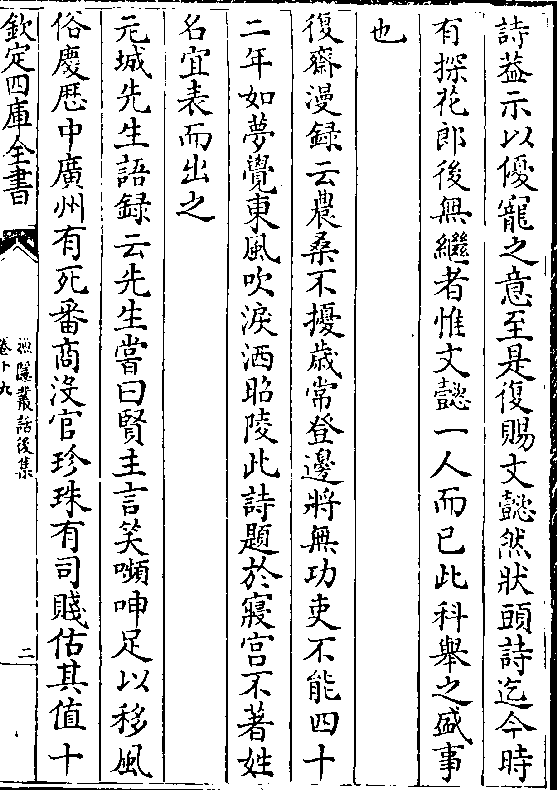 詩葢示以優寵之意至是復賜文懿然狀頭詩迄今時
有探花郎後無繼者惟文懿一人而已此科舉之盛事
也
復齋漫録云農桑不擾歳常登邊將無功吏不能四十
二年如夢覺東風吹淚洒昭陵此詩題於寢宫不著姓
名宜表而出之
元城先生語録云先生嘗曰賢主言笑嚬呻足以移風
俗慶厯中廣州有死番商没官珍珠有司賤估其值十
欽定四庫全書
漁隱叢話後集
卷十九
二